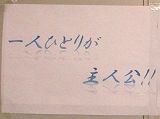 一人ひとりが
主人公!!